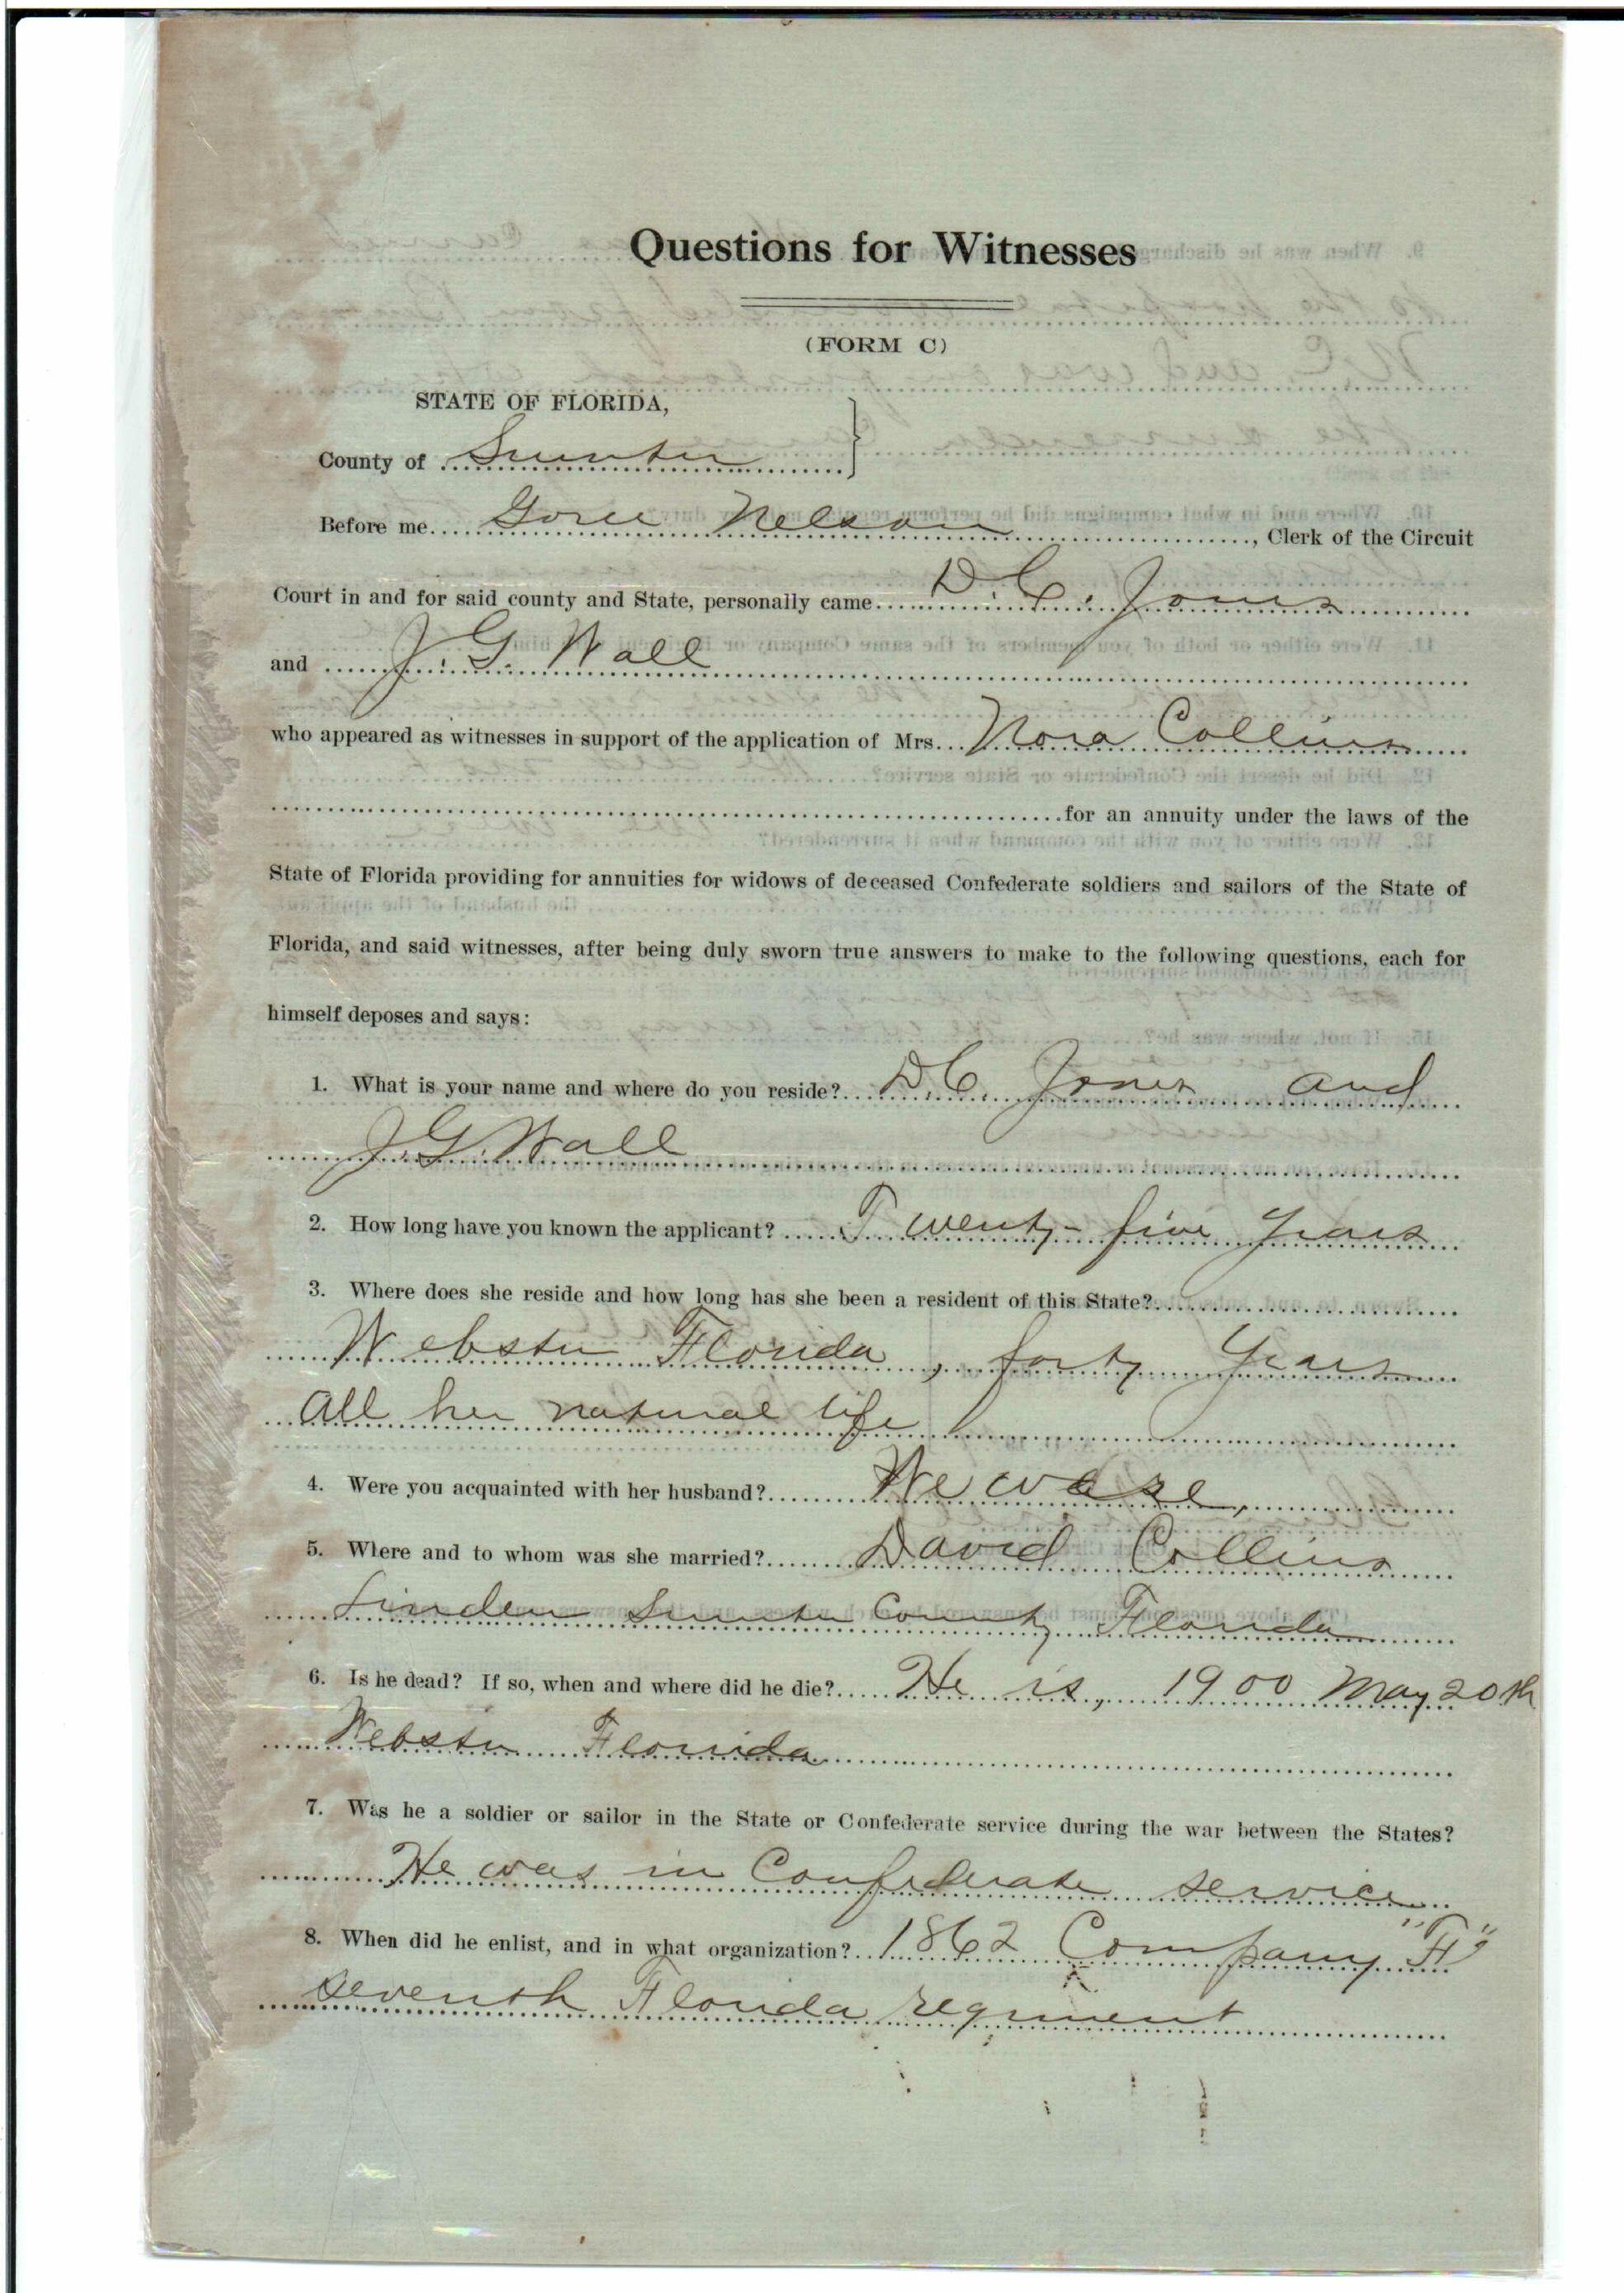 Questions for Witnesses
(FORM C)
STATE OF FLORIDA,
County of Sumter
Before me Nelson, Clerk of the Circuit
Court in and for said county and State, personally came D. C. Jones
and J. G. Wall
who appeared as witnesses in support of the application of Mrs. Nora Collins
for an annuity under the laws of the
State of Florida providing for annuities for widows of deceased Confederate soldiers and sailors of the State of
Florida, and said witnesses, after being duly sworn true answers to make to the following questions, each for
himself deposes and says:
1. What is your name and where do you reside? D.C. Jones and
J.G. Wall
2. How long have you known the applicant? Twenty-five years
3. Where does she reside and how long has she been a resident of this State?
Webster Florida, forty years
All her natural life
4. Were you acquainted with her husband? We ware,
5. Where and to whom was she married? David Collins
Linden Sumter County Florida
6. Is he dead? If so, when and where did he die? He is, 1900 May 20th
Webster Florida
7. Was he a soldier or sailor in the State or Confederate service during the war between the States?
He was in Confederate service
8. When did he enlist, and in what organization? 1862 Company "F"
seventh Florida regment